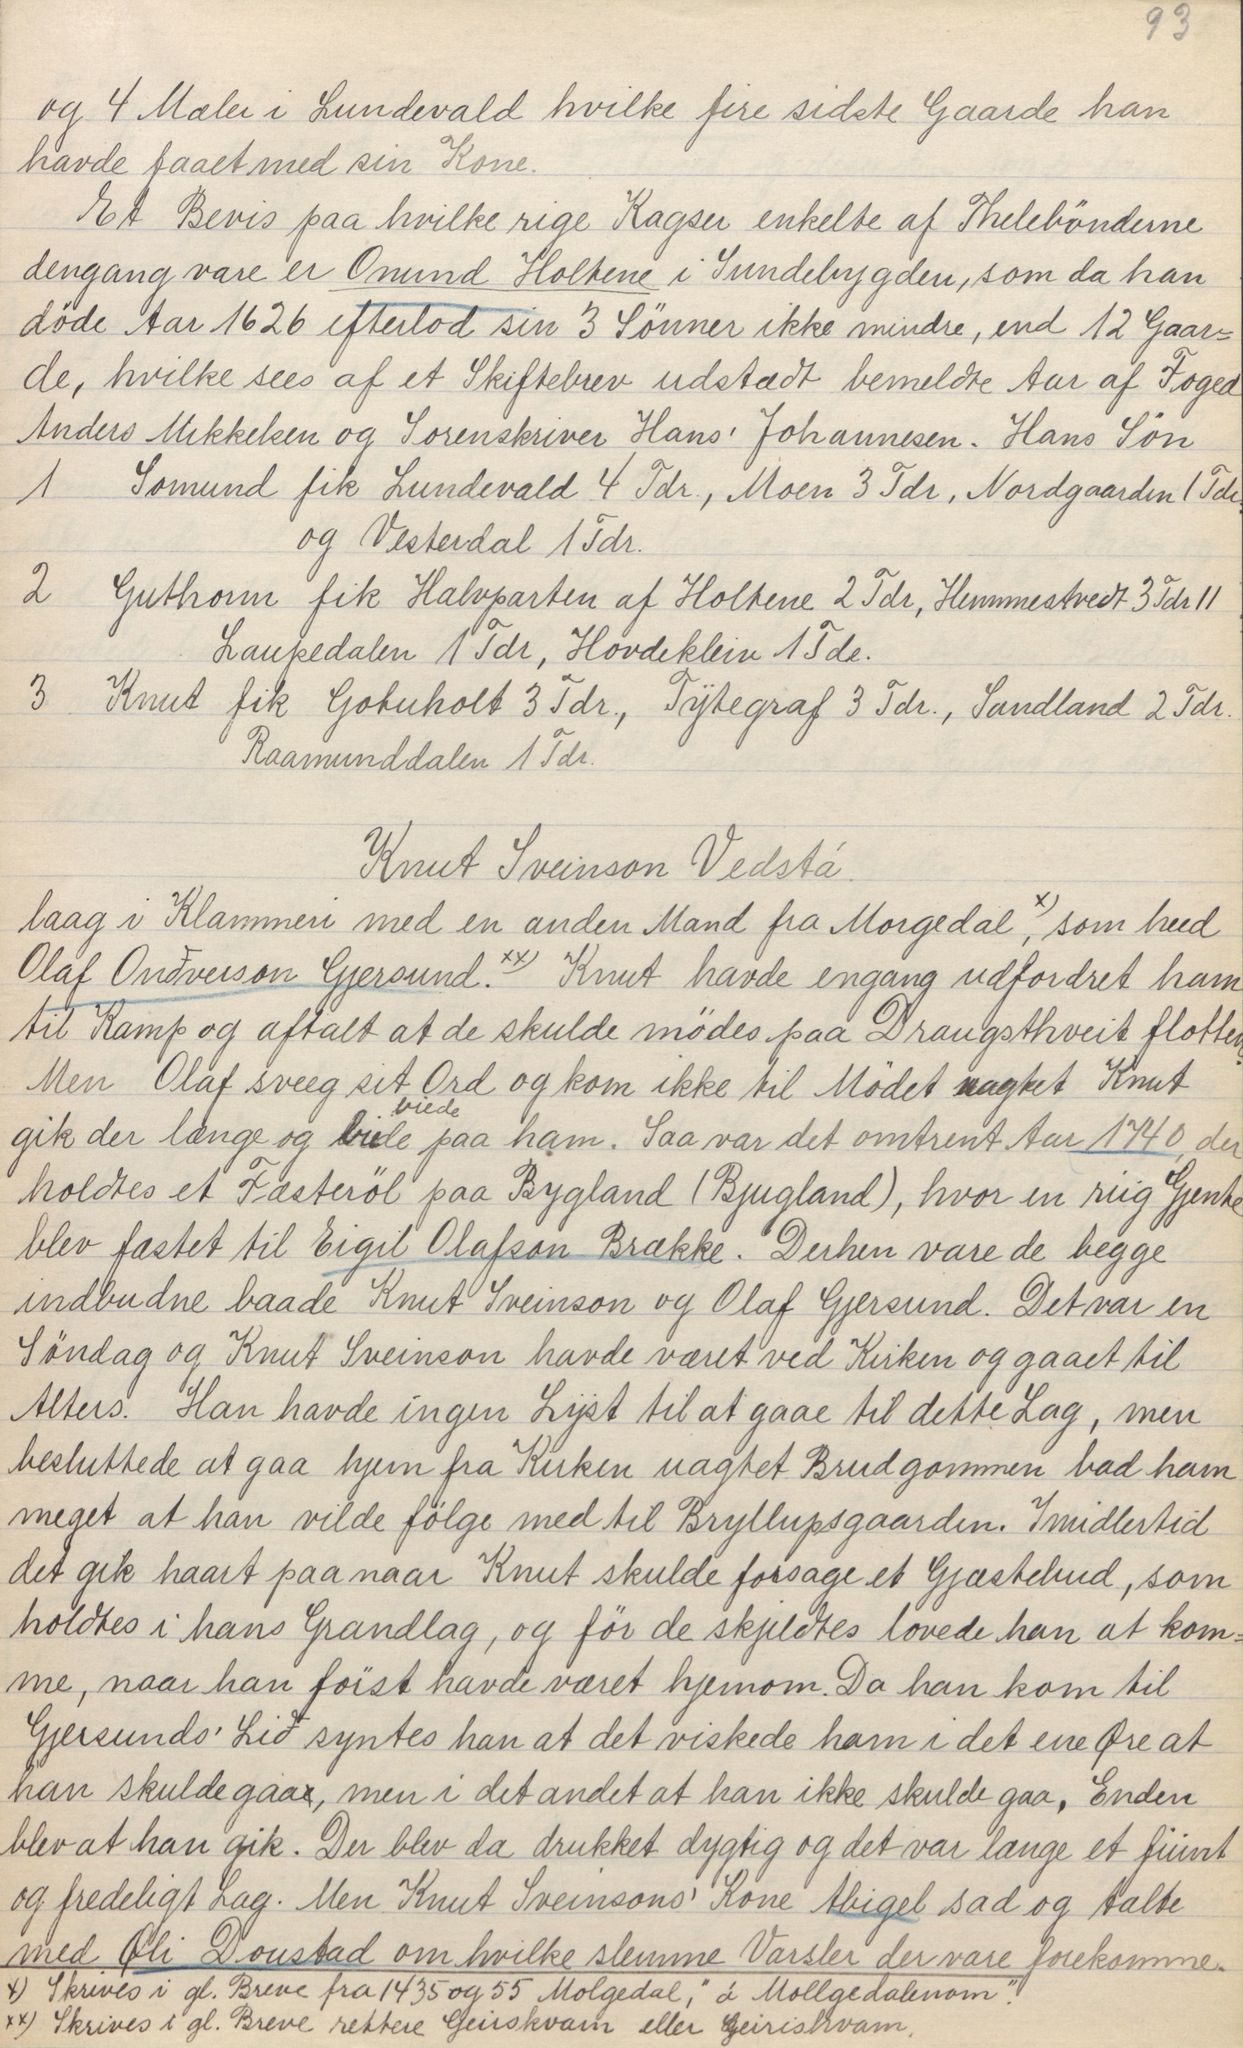 93
og 4 Mæler i Lundevald hvilke fire sidste Gaarde han
havde faaet med sin Kone.
Et Bevis paa hvilke rige Kagser enkelte af Thelebönderne
dengang vare er Onund Holtene i Sundebygden, som da han
döde Aar 1626 efterlod sin 3 Sönner ikke mindre, end 12 Gaar=
de, hvilke sees af et Skiftebrev udstædt bemeldte Aar af Foged
Anders Mikkelsen og Sorenskriver Hans' Johannesen. Hans Sön
1 Somund fik Lundevald 4 Tdr., Moen 3 Tdr, Nordgaarden 1 Tdr.
og Vesterdal 1 Tdr.
2 Guthorm fik Halvparten af Holtene 2 Tdr, Hemmestvedt 3 Tdr 11
Laupedalen 1 Tdr, Hovdeklein 1 Tde.
3 Knut fik Gotuholt 3 Tdr., Tÿtegraf 3 Tdr., Sundland 2 Tdr.
Raamunddalen 1 Tdr.
Knut Sveinson Vedstá.
laag i Klammeri med en anden Mand fra Morgedal x), som heed
Olaf Ondverson Gjersund. xx) Knut havde engang udfordret ham
til Kamp og aftalt at de skulde mödes paa Draugsthveit flotten.
Men Olaf sveeg sit Ord og kom ikke til Mödet uagtet Knut
biede
gik der længe og paa ham. Saa var det omtrent Aar 1740, der
holdtes et Fæsteröl paa Bygland (Bjugland), hvor en riig Gjente
blev fæstet til Eigil Olafson Brække. Derhen vare de begge
indbudne baade Knut Sveinson og Olaf Gjersund. Det var en
Söndag og Knut Sveinson havde været ved Kirken og gaaet til
Alters. Han havde ingen Lyst til at gaae til dette Lag, men
besluttede at gaa hjem fra Kirken uagtet Brudgommen bad ham
meget at han vilde fölge med til Bryllupsgaarden. Imidlertid
det gik haart paa naar Knut skulde forsage et Gjæstebud, som
holdtes i hans Grandlag, og för de skjeldtes lovede han at kom=
me, naar han först havde været hjemom. Da han kom til
Gjersunds' Lid syntes han at det viskede ham i det ene Øre at
han skulde gaa, men i det andet at han ikke skulde gaa. Enden
blev at han gik. Der blev da drukket dygtig og det var længe et fiint
og fredeligt Lag. Men Knut Sveinsons' Kone Abigel sad og talte
med Øli Doustad om hvilke slemme Varsler der vare forekomne.
x) Skrives i gl. Breve fra 1435 og 55 Molgedal," á Mollgedalenom".
xx) Skrives i gl. Breve rettere Geirskvam eller Geiriskvam.